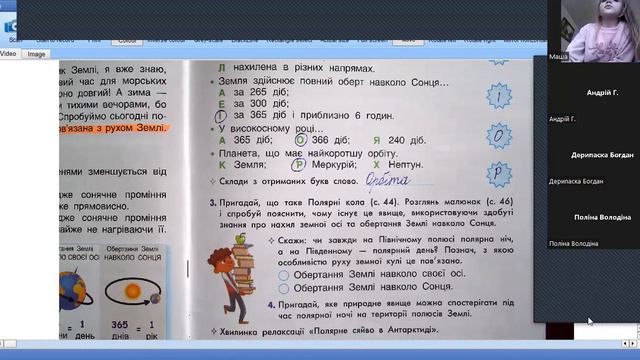 Video
Image
ик Землі, я вже знаю,
вий час для морських
рно довгий! А зима —
и тихими вечорами, бо
Спробуймо сьогодні по-
ов'язана з рухом Землі.
енями зменшується від
дже сонячне проміння
же прямовисно.
дже сонячне проміння
айже не нагріваючи її.
Обертання Землі
НАВКОЛО СОНЦЯ
365 = 1
Л нахилена в різних напрямах.
• Земля здійснює повний оберт навколо Сонця...
А за 265 діб;
Е за 300 діб;
І за 365 діб і приблизно 6 годин.
• У високосному році...
А 365 діб; О 366 діб; Я 240 діб.
• Планета, що має найкоротшу орбіту.
К Земля; Р Меркурій; Х Нептун.
Склади з отриманих букв слово. Орбіта
І
О
Р
3. Пригадай, що таке Полярні кола (с. 44). Розглянь малюнок (с. 46)
і спробуй пояснити, чому існує це явище, використовуючи здобуті
знання про нахил земної осі та обертання Землі навколо Сонця.
Скажи: чи завжди на Північному полюсі полярна ніч,
а на Південному — полярний день? Познач, з якою
особливістю руху земної кулі це пов'язано.
Обертання Землі навколо своєї осі.
Обертання Землі навколо Сонця.
4. Пригадай, яке природне явище можна спостерігати під
час полярної ночі на території полюсів Землі.
Хвилинка релаксації «Полярне сяйво в Антарктиді».
Маша
Андрій Г.
Андрій Г.
Дерипаска Богдан
Дерипаска Богдан
Поліна Володіна
Поліна Володіна